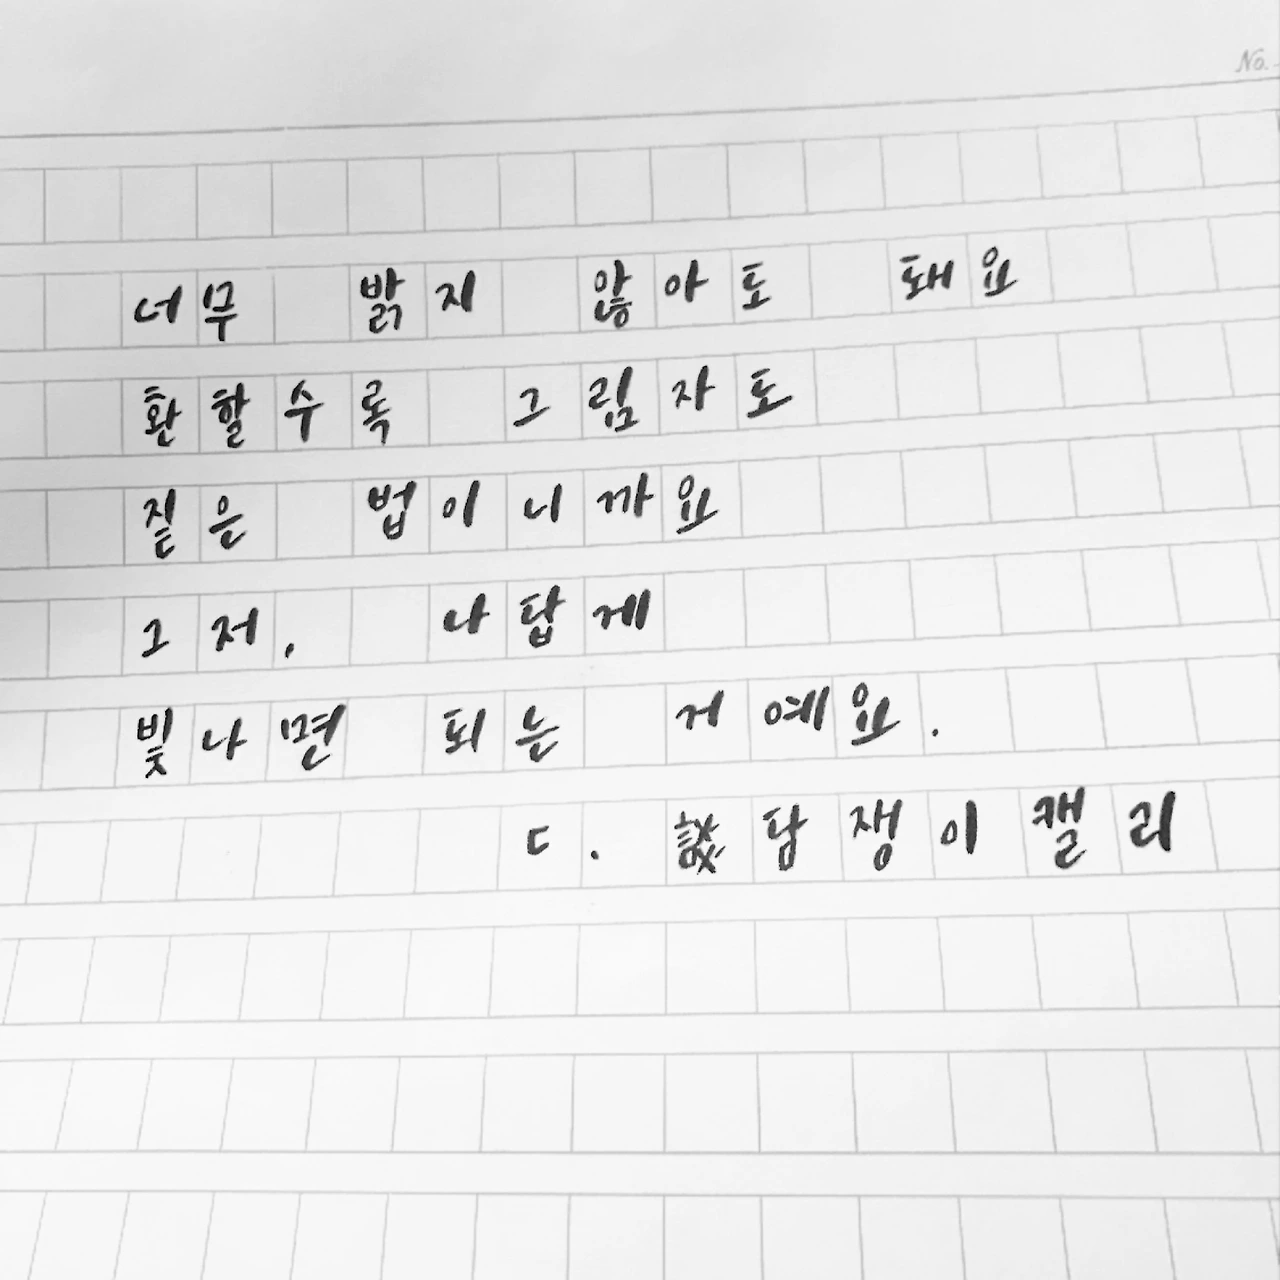 No.
너무 밝지 않아도 돼요
환할수록 그림자도
짙은 법이니까요
그저, 나답게
빛나면 되는 거예요.
ㄷ. 談담쟁이캘리